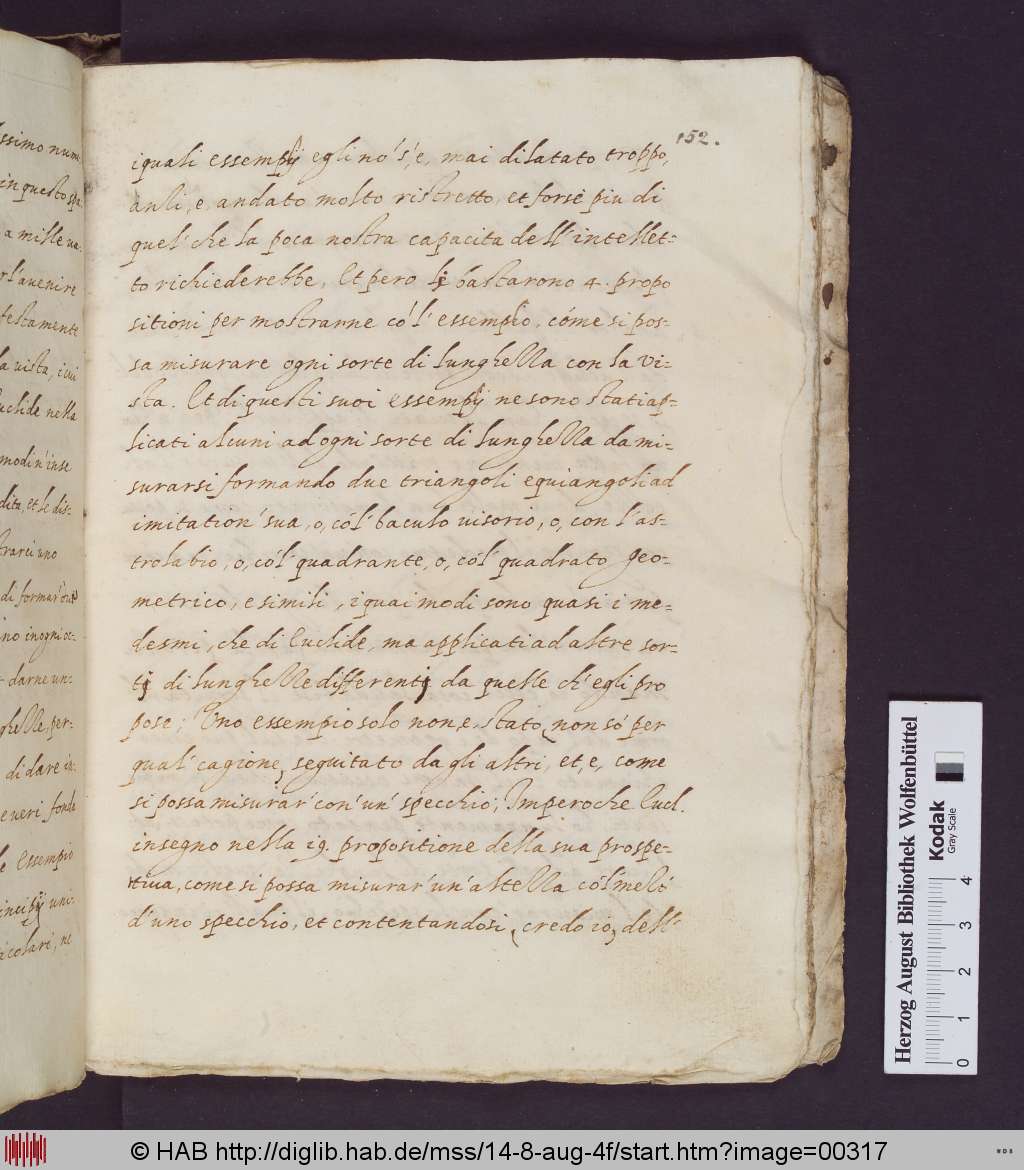 152.
iquali essempij egli nó s'è, mai dilatato troppo,
anli, e, andato molto ristretto, et forse piu di
quel' che la poca nostra capacita dell' intellet=
to richiederebbe, Et pero li bastarono 4. propo
sitioni per mostrarne có l' essempio, cóme si pos=
sa misurare ogni sorte di lunghella con la vi=
sta. Et di questi suoi essempij ne sono stati ap=
plicati alcuni ad ogni sorte di lunghella da mi=
surarsi formando due triangoli equiangoli ad
imitation' sua, o, cól' baculo visorio, o, con l'as=
trolabio, o, cól' quadrante, o, cól' quadrato Geo=
metrico, e simili, i quai modi sono quasi i me=
desmi, che di Euclide, ma applicati ad altre sor=
tj di lunghelle differentj da quelle ch' egli pro
pose; Uno essempio solo non, e, stato, non só per
qual' cagione, seguitato da gli altri, et, e, come
si possa misurar' con' un' specchio; Imperoche Eucl.
insegno nella 19. propositione della sua prospe=
ttiva, come si possa misurar' un' altella cól' mell'
d'uno specchio, et contentandosi, credo io, dell'
ssimo nume
in questo spa
a mille va=
r l'avenire
festamente
la vista, i cui
uclide nella
modi n' inse
dita, et le dis=
trarci uno
di formar'
ino in ogni oc=
darne un=
ghelle, per=
di dare in=
e veri fonda
le essempio
incipij uni=
icolari, ne
Herzog August Bibliothek Wolfenbüttel
Kodak
Gray Scale
0 1 2 3 4
© HAB http://diglib.hab.de/mss/14-8-aug-4f/start.htm?image=00317